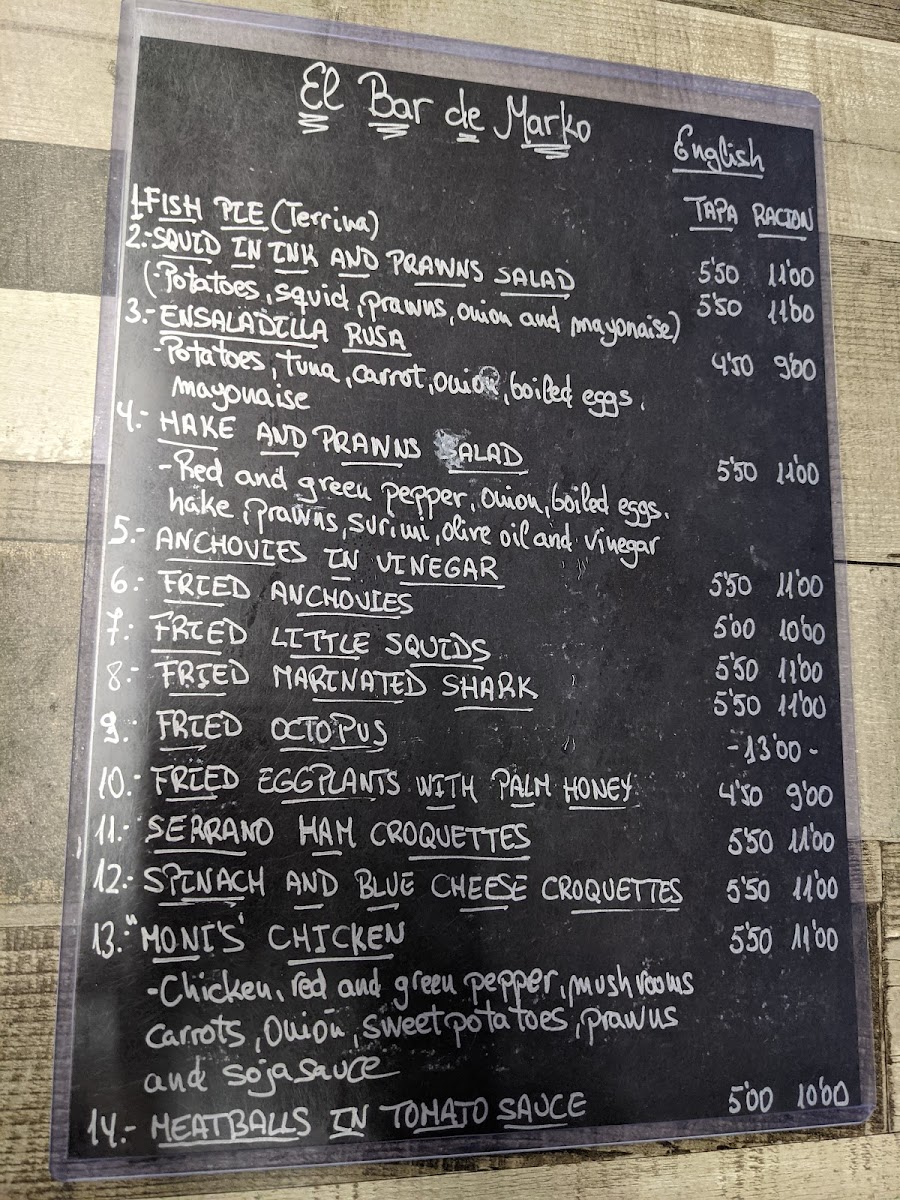 El Bar de Marko
English
TAPA RACION
1-FISH PIE (Terrina) 5'50 11'00
2.-SQUID IN INK AND PRAWNS SALAD 5'50 11'00
(-Potatoes, squid, prawns, onion and mayonaise)
3.- ENSALADILLA RUSA 4'50 9'00
-Potatoes, tuna, carrot, onion, boiled eggs,
mayonaise
4.- HAKE AND PRAWNS SALAD 5'50 11'00
-Red and green pepper, onion, boiled eggs.
hake, prawns, surimi, olive oil and vinegar
5.- ANCHOVIES IN VINEGAR 5'50 11'00
6.- FRIED ANCHOVIES 5'00 10'00
7.- FRIED LITTLE SQUIDS 5'50 11'00
8.- FRIED MARINATED SHARK 5'50 11'00
9.- FRIED OCTOPUS -13'00-
10.- FRIED EGGPLANTS WITH PALM HONEY 4'50 9'00
11.- SERRANO HAM CROQUETTES 5'50 11'00
12.- SPINACH AND BLUE CHEESE CROQUETTES 5'50 11'00
13.- "MONI'S" CHICKEN 5'50 11'00
-Chicken, red and green pepper, mushrooms
carrots, onion, sweet potatoes, prawns
and soja sauce
14.- MEATBALLS IN TOMATO SAUCE 5'00 10'00